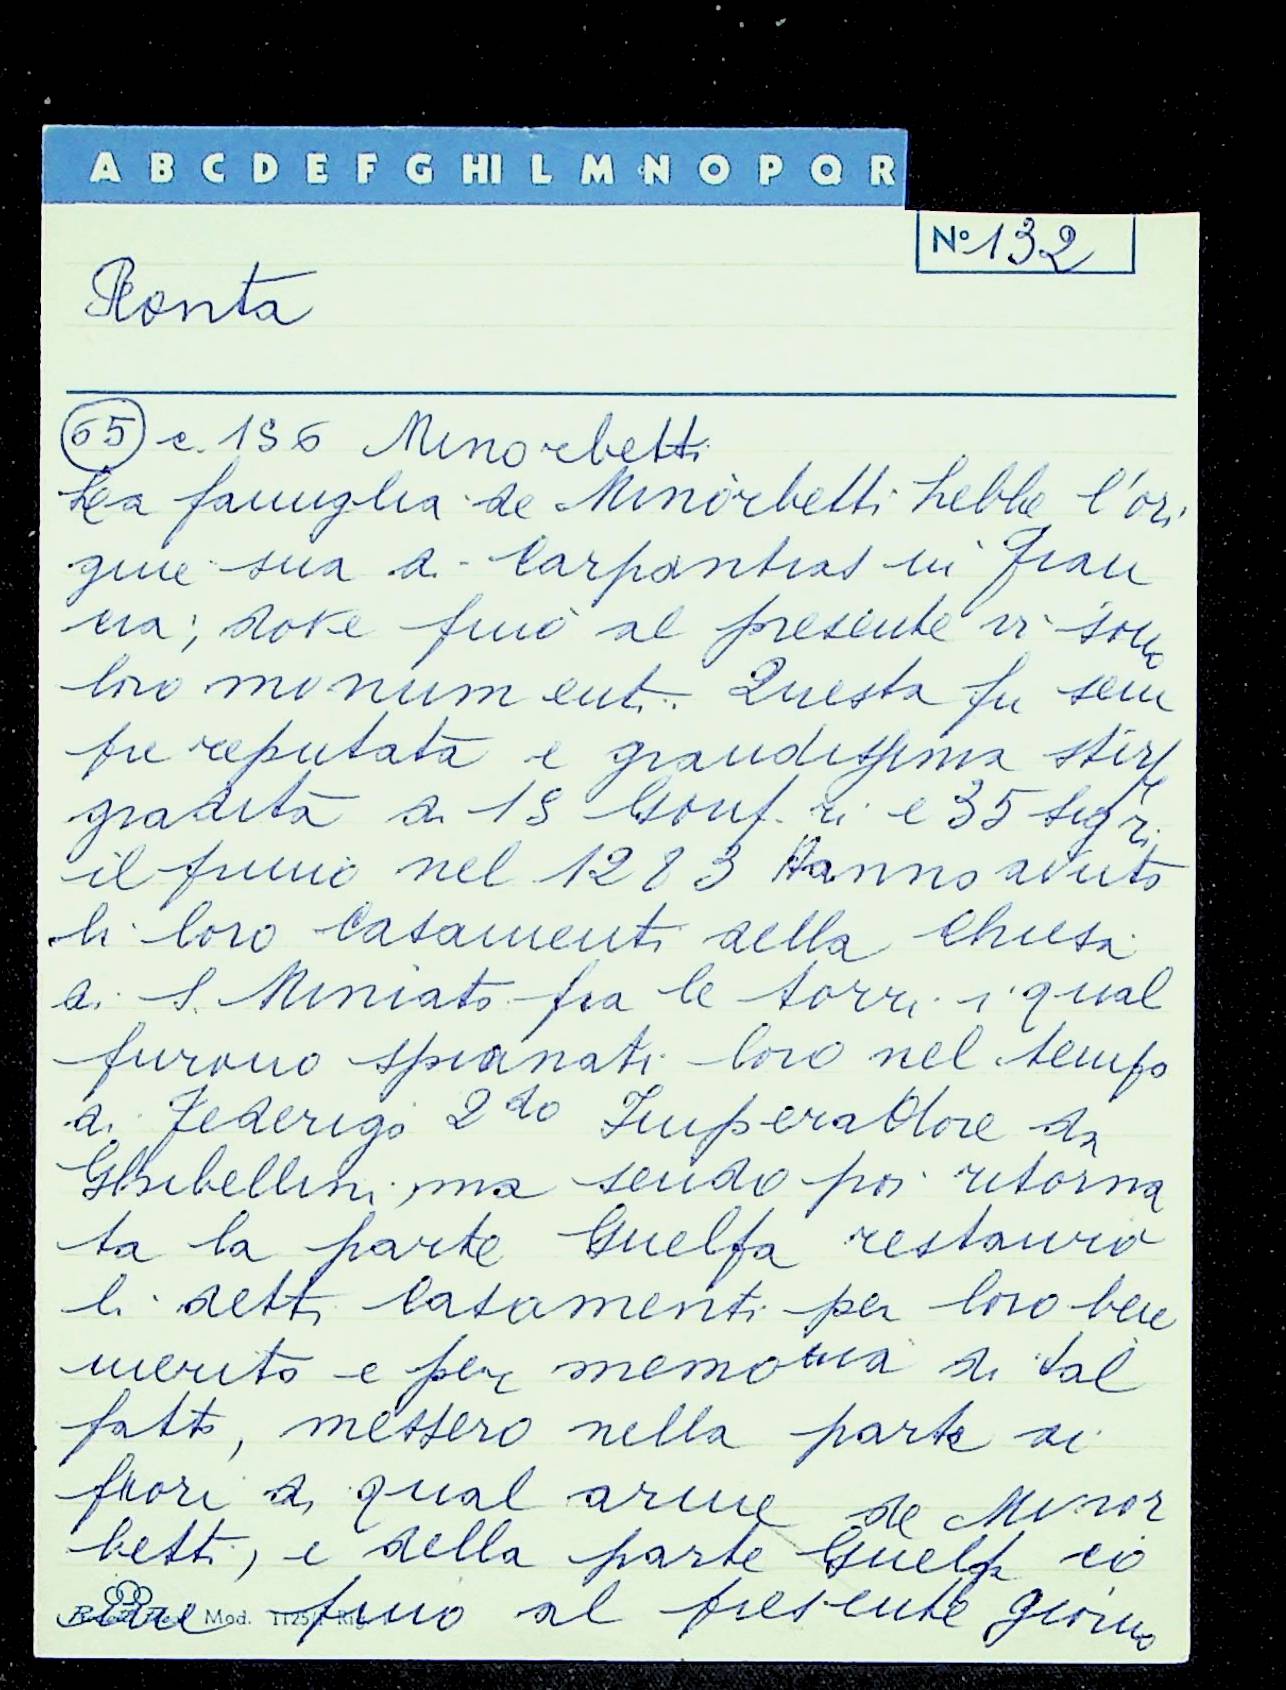 A B C D E F G HI L M N O P Q R
N° 132
Ronta
65 c. 156 Minorbetti
La famiglia de Minorbetti hebbe l'ori
gine sua di Carpantras in Fran
cia; dove fino al presente vi sono
loro monumenti. Questa fu sem
pre reputata e grandissima stirp
gradita di 15 Gonf.ri e 35 Sig.ri
il primo nel 1283 Hanno avuto
li loro Casamenti della Chiesa
di S. Miniato fra le torri i qual
furono spianati loro nel tempo
di Federigo 2do Imperattore da
Ghibellini, ma sendo poi ritorna
ta la parte Guelfa restaurò
li detti Casamenti per loro bene
merito e per memoria di tal
fatto, messero nella parte di
fuori di qual arme de Minor
betti, e della parte Guelfa
fino al presente giorno
Mod.